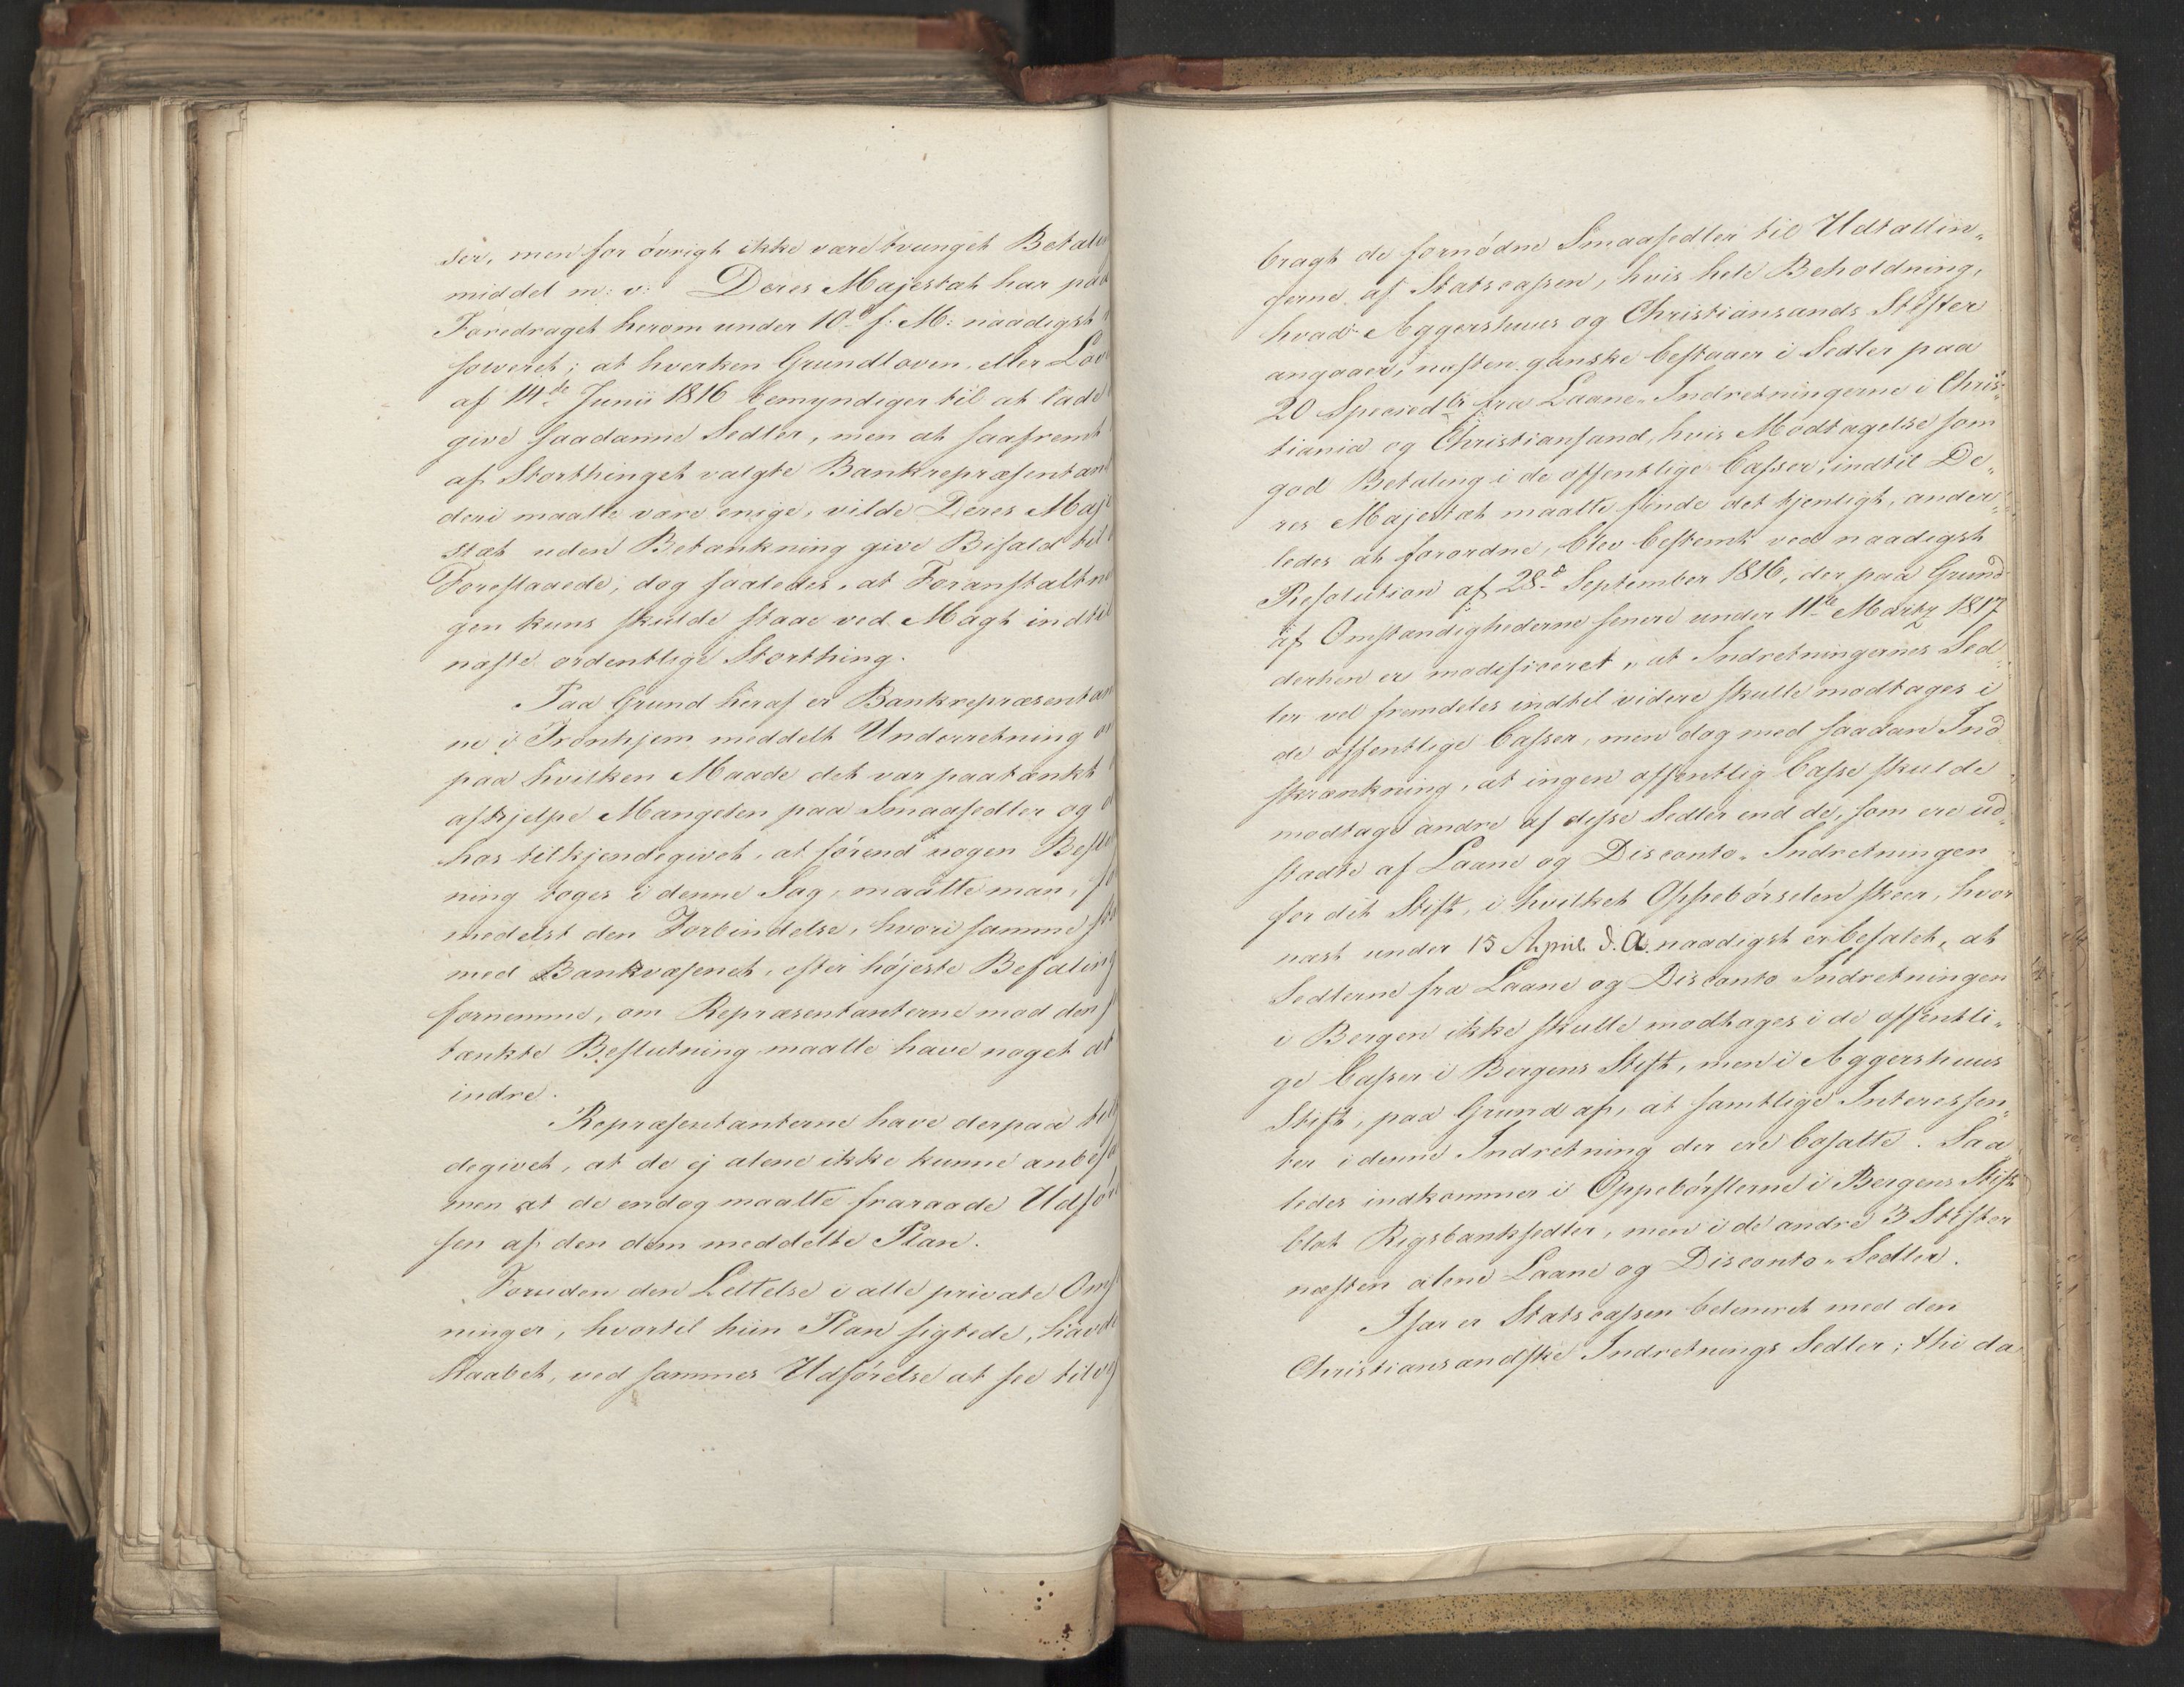 ser, men for övrigt ikke være tvunget Betalin
middel m: v: Deres Majestæt har paa
Foredraget herom under 10.d f: M: naadigst
solveret; at hverken Grundloven, eller Lov
af 14.de Junii 1816 bemyndiger til at lade
give saadanne Sedler, men at saafremt
af Storthinget valgte Bankrepræsentan
deri maatte være enige, vilde Deres Maje
stæt uden Betænkning give Bifald til
Foreslaaede, dog saaledes, at Foranstaltni
gen kuns skulde staae ved Magt indtil
næste ordentlige Storthing.
Paa Grund heraf er Bankrepræsentan
ne i Tronhjem meddelt Underretning o
paa hvilken Maade det var paatænkt
afhjelpe Mangelen paa Smaasedler og
hos tilkjendegivet, at förend nogen Beslu
ning toges i denne Sag, maatte man, fo
medelst den Forbindelse, hvori samme sto
med Bankvæsenet, efter höjeste Befaling
fornemme, om Repræsentanterne mod den
tænkte Beslutning maatte have noget at
indre.
Repræsentanterne have derpaa tilk
degivet, at de ej alene ikke kunne anbefa
men at de endog maatte fraraade Udföre
sen af den dem meddelte Plan.
Foruden den Lettelse i alle private Oms
ninger, hvortil hiin Plan sigtede, havde
Haabet, ved sammes Udförelse at see tilve
bragt de fornödne Smaasedler til Udtællin„
gerne af Statscassen, hvis hele Beholdning,
hvad Aggershuus og Christiansands Stifter
angaaer, næsten ganske bestaaer i Sedler paa
20 Speciedlr fra Laane„Indretningerne i Chris„
tiania og Christiansand, hvis Modtagelse som
god Betaling i de offentlige Casser, indtil De„
res Majestæt maatte finde det tjenligt, ander„
ledes at forordne, blev bestemt ved naadigst
Resolution af 28.d September 1816, der paa Grund
af Omstændighederne senere under 11.te Martz 1817
derhen er modificeret, at Indretningernes Sed„
ler vel fremdeles indtil videre skulle modtages i
de offentlige Casser, men dog med saadan Ind„
skrænkning, at ingen offentlig Casse skulde
modtage andre af disse Sedler end de, som ere ud„
stædte af Laane og Disconto„Indretningen
for dit Stift, i hvilket Oppebörselen skeer, hvor
næst under 15 April d. A. naadigst er befalet, at
Sedlerne fra Laane og Disconto Indretningen
i Bergen ikke skulle modtages i de offentli„
ge Casser i Bergens Stift, men i Aggershuus
Stift, paa Grund af, at samtlige Interessen„
ter i denne Indretning der ere bosatte. Saa„
ledes indkommer i Oppebörslerne i Bergens Stift
blot Rigsbanksedler, men i de andre 3 Stifter
næsten alene Laane og Disconto„Sedler.
Især er Statscassen bebyrdet med den
Christiansandske Indretnings Sedler; thi da